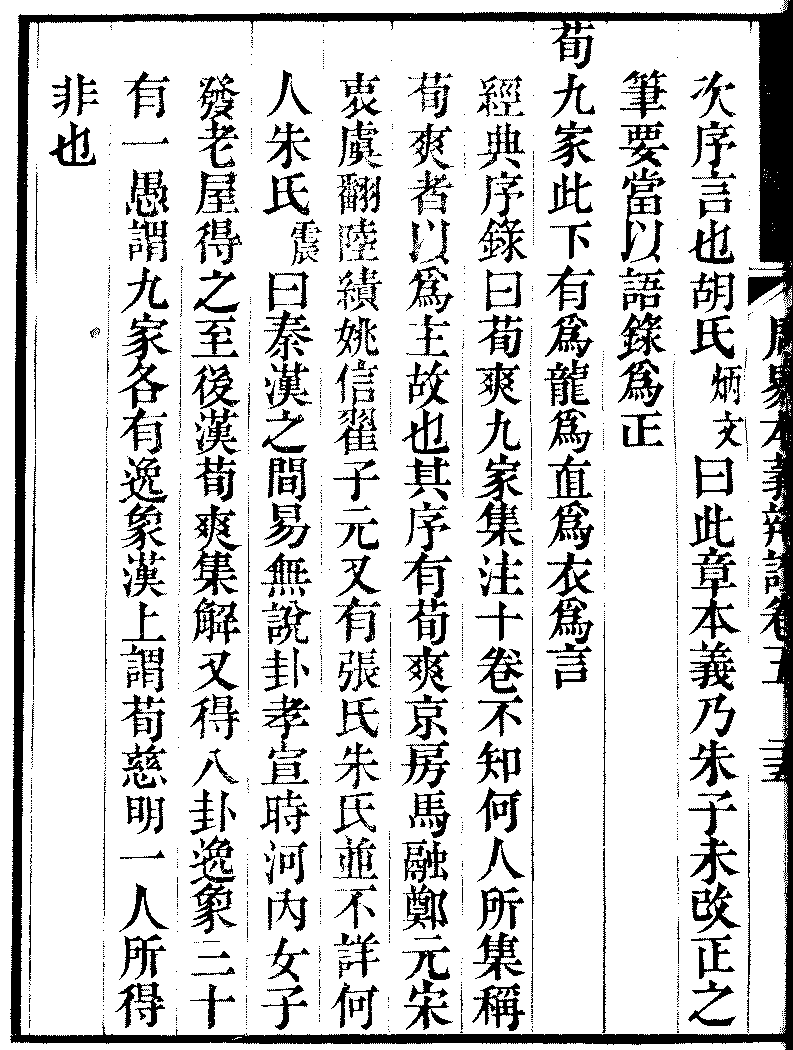 周易本義辨證卷五
次序言也胡氏炳文曰此章本義乃朱子未改正之
筆要當以語錄為正
荀九家此下有為龍為直為衣為言
經典序錄曰荀爽九家集注十卷不知何人所集稱
荀爽者以為主故也其序有荀爽京房馬融鄭元宋
衷虞翻陸績姚信翟子元又有張氏朱氏並不詳何
人朱氏震曰秦漢之間易無說卦孝宣時河內女子
發老屋得之至後漢荀爽集解又得八卦逸象三十
有一愚謂九家各有逸象漢上謂荀慈明一人所得
非也